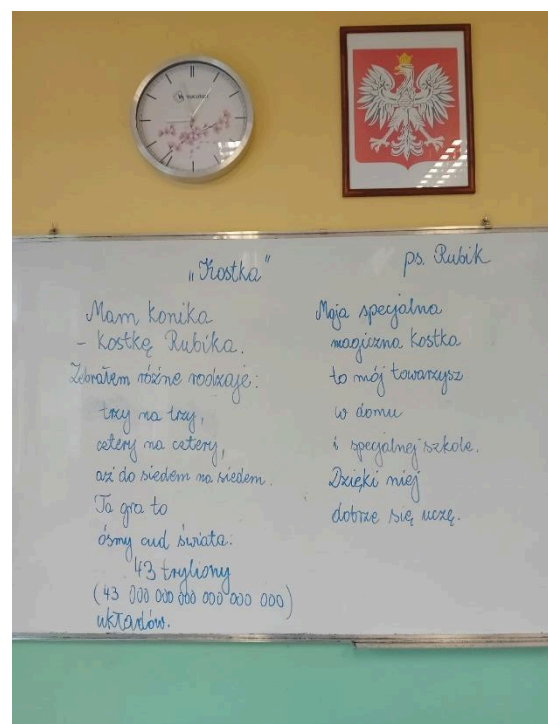 „Kostka"
Mam konika
- kostkę Rubika.
Zebrałem różne rodzaje:
trzy na trzy,
cztery na cztery,
aż do siedem na siedem.
Ta gra to
ósmy cud świata:
43 tryliony
(43 000 000 000 000 000 000)
układów.
ps. Rubik
Moja specjalna
magiczna kostka
to mój towarzysz
w domu
i specjalnej szkole.
Dzięki niej
dobrze się uczę.